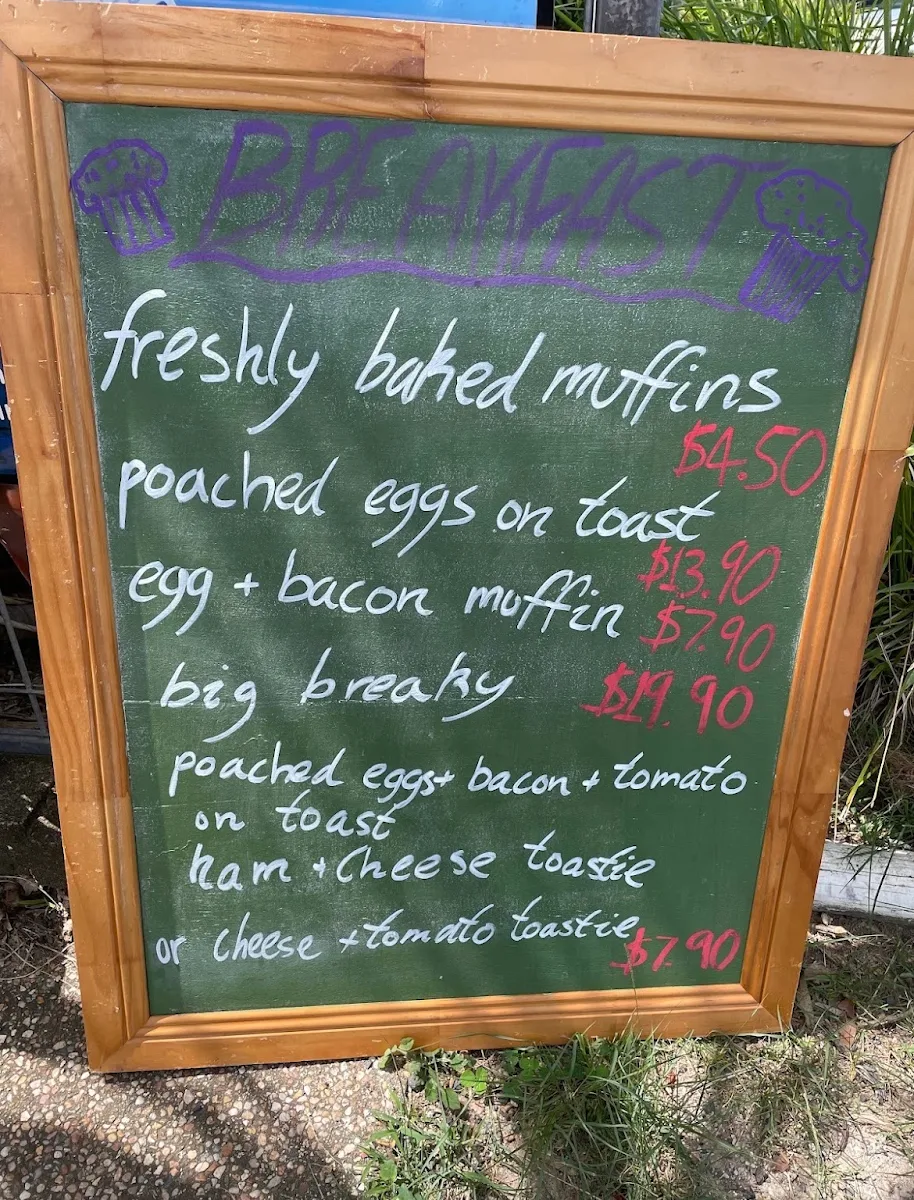 BREAKFAST
freshly baked muffins
$4.50
poached eggs on toast
$13.90
egg + bacon muffin $7.90
big breaky $19.90
poached eggs + bacon + tomato
on toast
ham + Cheese toastie
or Cheese + tomato toastie $7.90